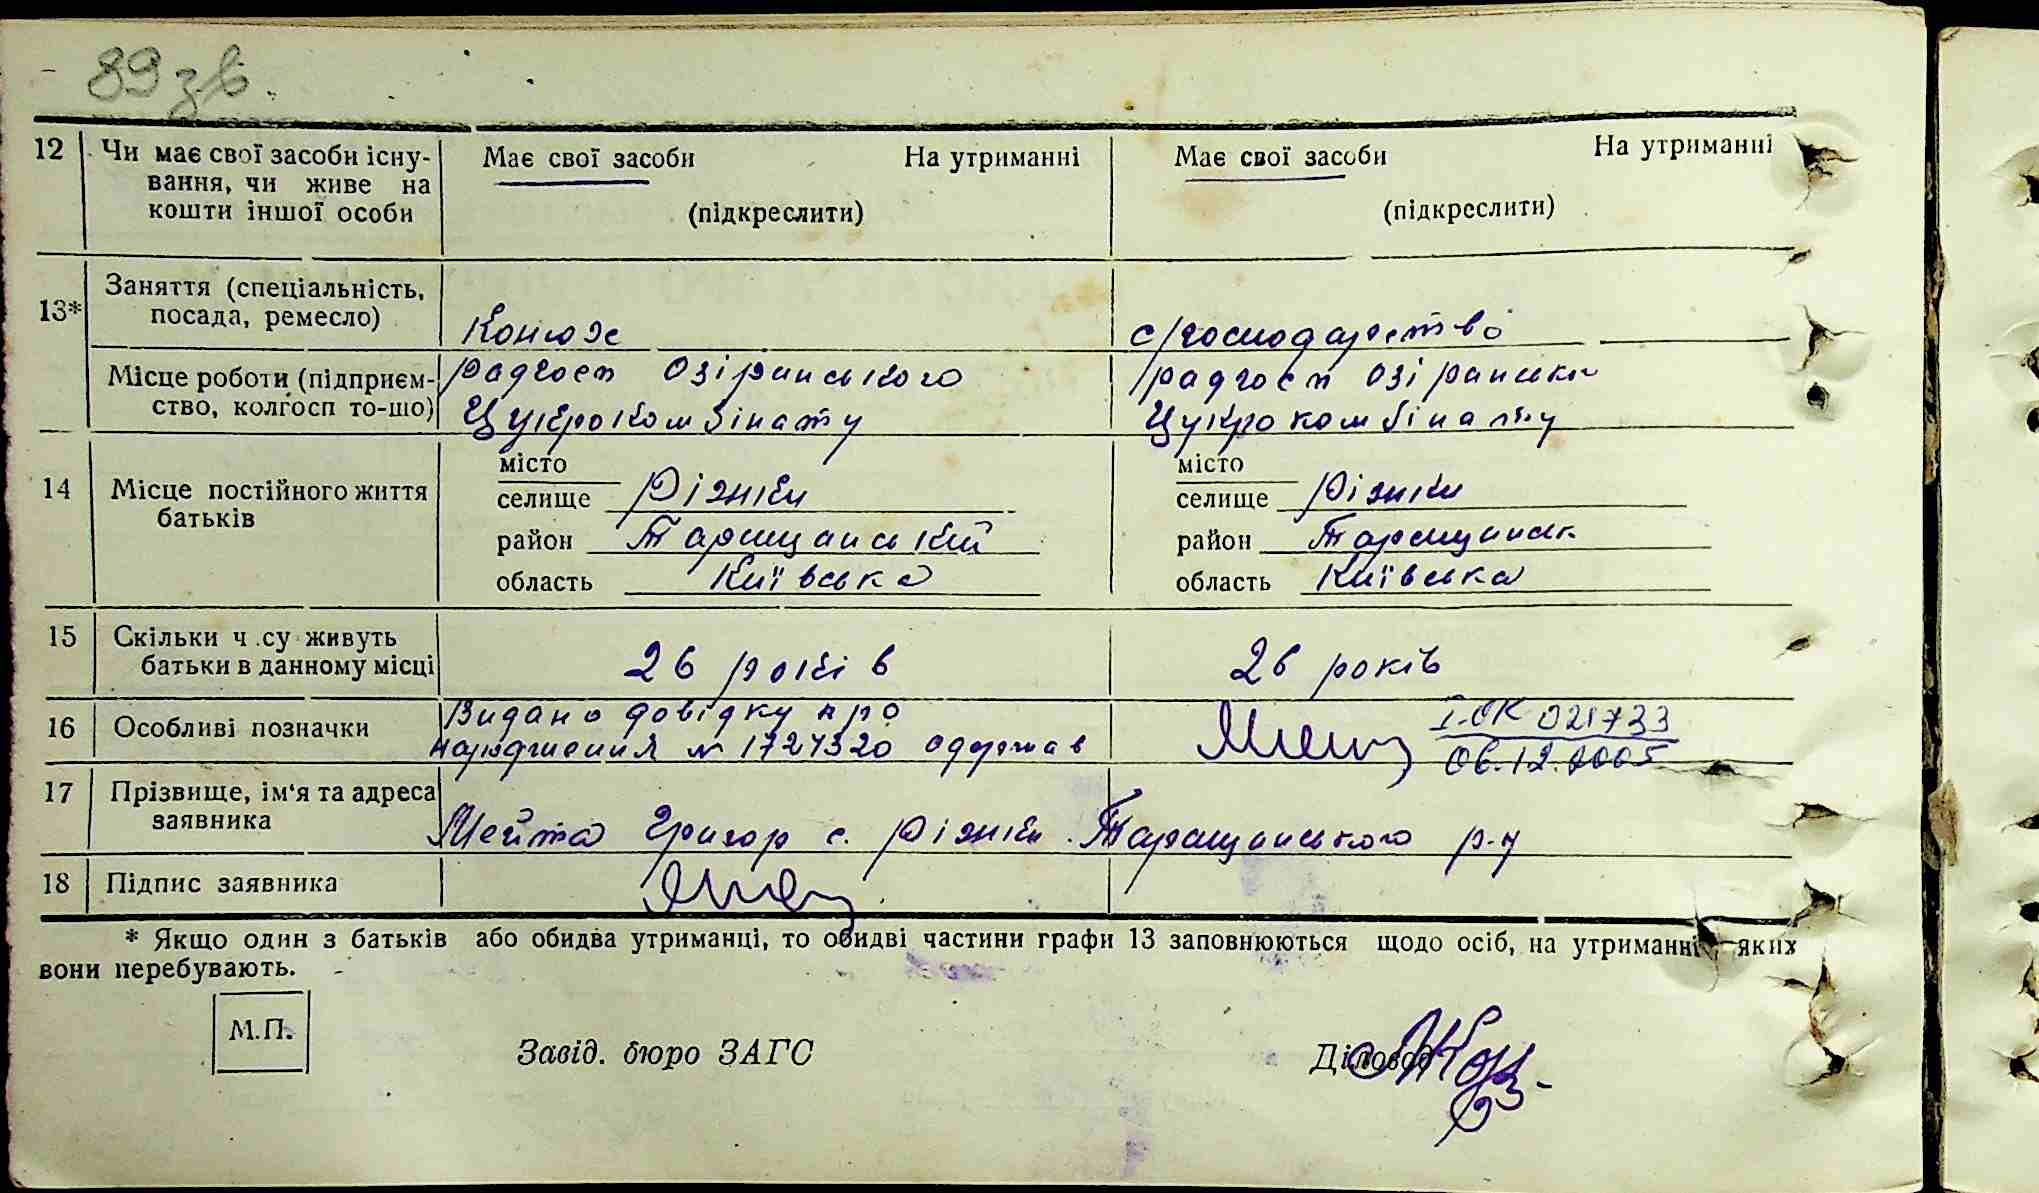 89 зв.
12 Чи має свої засоби існу- Має свої засоби На утриманні Має свої засоби На утриманні
вання, чи живе на
кошти іншої особи (підкреслити) (підкреслити)
13* Заняття (спеціальність,
посада, ремесло) Конюх с/господарство
Місце роботи (підприєм- радгосп Озірянського радгосп Озірянськ
ство, колгосп то-що) Цукрокомбінату Цукрокомбінату
місто місто
14 Місце постійного життя селище Ріжки селище Ріжки
батьків район Таращанський район Таращанськ
область Київська область Київська
15 Скільки ч су живуть
батьки в данному місці 26 років 26 років
16 Особливі позначки Видано довідку про I-ОК 021733
народження № 1724320 одержав 06.12.2005
17 Прізвище, ім'я та адреса
заявника Мейта Григор с. Ріжки Таращанського р-н
18 Підпис заявника
* Якщо один з батьків або обидва утриманці, то обидві частини графи 13 заповнюються щодо осіб, на утриманні яких
вони перебувають.
М.П.
Завід. бюро ЗАГС Діловод